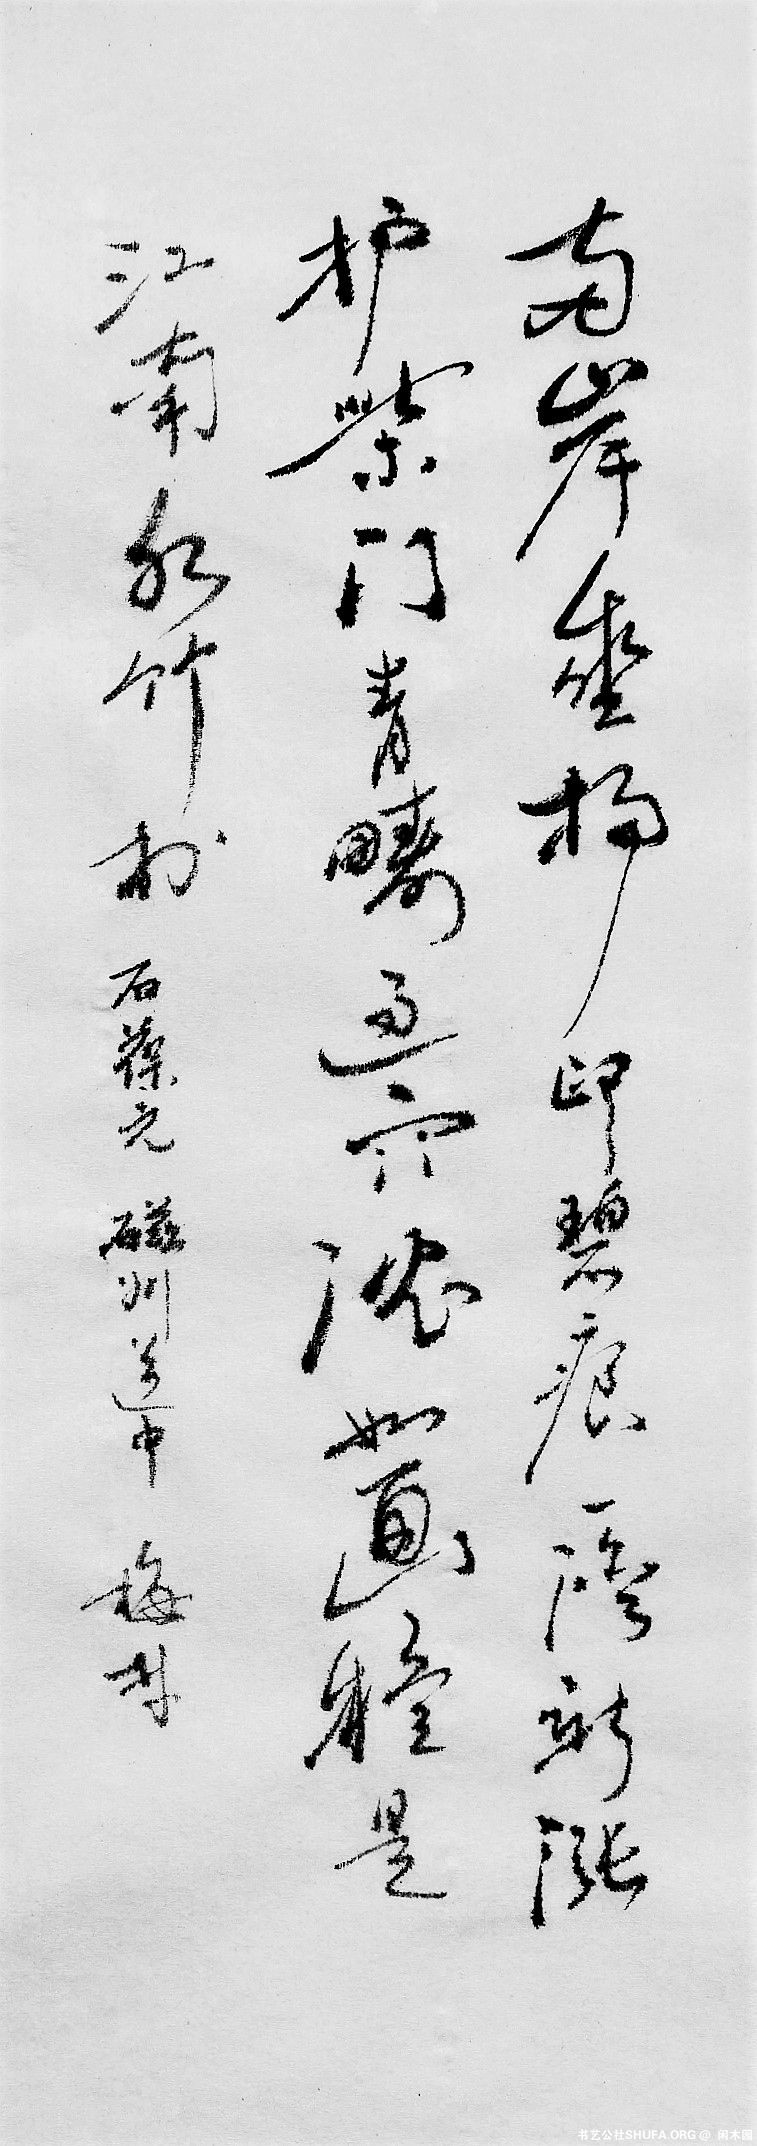 两岸垂杨印碧痕一溪新涨
护柴门青畴过雨浓如画疑是
江南水竹村 石葆元 磁州道中 梅村
书艺公社SHUFA.ORG @ 闲木园